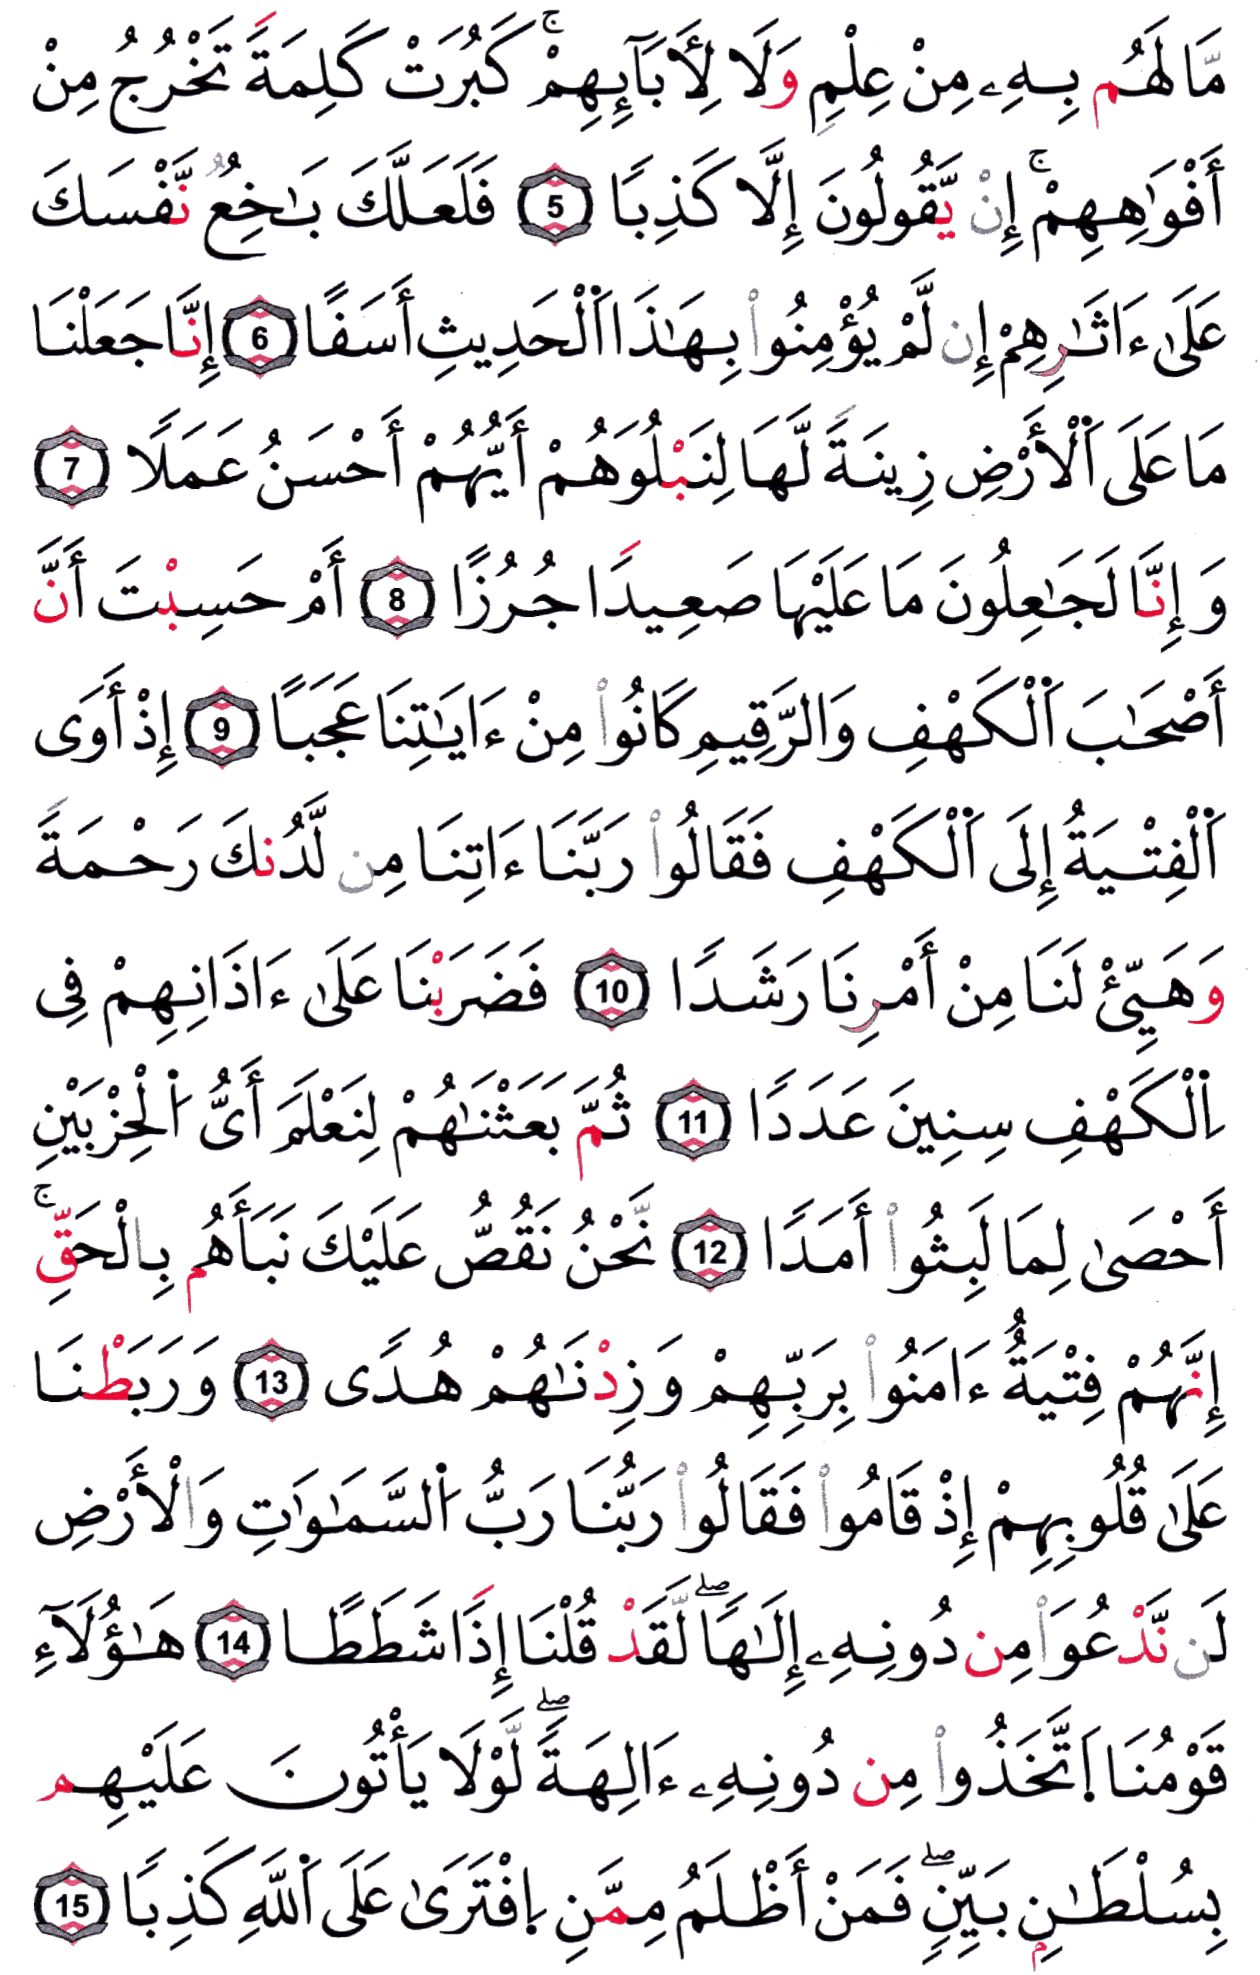 مَّا لَهُم بِهِۦ مِنْ عِلْمٍ وَلَا لِأَبَآئِهِمْ ۚ كَبُرَتْ كَلِمَةً تَخْرُجُ مِنْ
أَفْوَٰهِهِمْ ۚ إِنْ يَّقُولُونَ إِلَّا كَذِبًا 5 فَلَعَلَّكَ بَٰخِعٌ نَّفْسَكَ
عَلَىٰ ءَاثَٰرِهِمْ إِن لَّمْ يُؤْمِنُوا۟ بِهَٰذَا اَ۬لْحَدِيثِ أَسَفًا 6 إِنَّا جَعَلْنَا
مَا عَلَى اَ۬لْأَرْضِ زِينَةً لَّهَا لِنَبْلُوَهُمْ أَيُّهُمْ أَحْسَنُ عَمَلًا 7
وَإِنَّا لَجَٰعِلُونَ مَا عَلَيْهَا صَعِيدًا جُرُزًا 8 أَمْ حَسِبْتَ أَنَّ
أَصْحَٰبَ اَ۬لْكَهْفِ وَالرَّقِيمِ كَانُوا۟ مِنْ ءَايَٰتِنَا عَجَبًا 9 إِذْ أَوَى
اَ۬لْفِتْيَةُ إِلَى اَ۬لْكَهْفِ فَقَالُوا۟ رَبَّنَا ءَاتِنَا مِن لَّدُنكَ رَحْمَةً
وَهَيِّئْ لَنَا مِنْ أَمْرِنَا رَشَدًا 10 فَضَرَبْنَا عَلَىٰ ءَاذَانِهِمْ فِى
اِ۬لْكَهْفِ سِنِينَ عَدَدًا 11 ثُمَّ بَعَثْنَٰهُمْ لِنَعْلَمَ أَىُّ اُ۬لْحِزْبَيْنِ
أَحْصَىٰ لِمَا لَبِثُوا۟ أَمَدًا 12 نَّحْنُ نَقُصُّ عَلَيْكَ نَبَأَهُم بِالْحَقِّ ۚ
إِنَّهُمْ فِتْيَةٌ ءَامَنُوا۟ بِرَبِّهِمْ وَزِدْنَٰهُمْ هُدًى 13 وَرَبَطْنَا
عَلَىٰ قُلُوبِهِمْ إِذْ قَامُوا۟ فَقَالُوا۟ رَبُّنَا رَبُّ اُ۬لسَّمَٰوَٰتِ وَالْأَرْضِ
لَن نَّدْعُوَا۟ مِن دُونِهِۦ إِلَٰهًا ۖ لَّقَدْ قُلْنَا إِذًا شَطَطًا 14 هَٰؤُلَآءِ
قَوْمُنَا اَ۪تَّخَذُوا۟ مِن دُونِهِۦ ءَالِهَةً ۖ لَّوْلَا يَأْتُونَ عَلَيْهِم
بِسُلْطَٰنٍ بَيِّنٍ ۖ فَمَنْ أَظْلَمُ مِمَّنِ اِ۪فْتَرَىٰ عَلَى اَ۬للَّهِ كَذِبًا 15